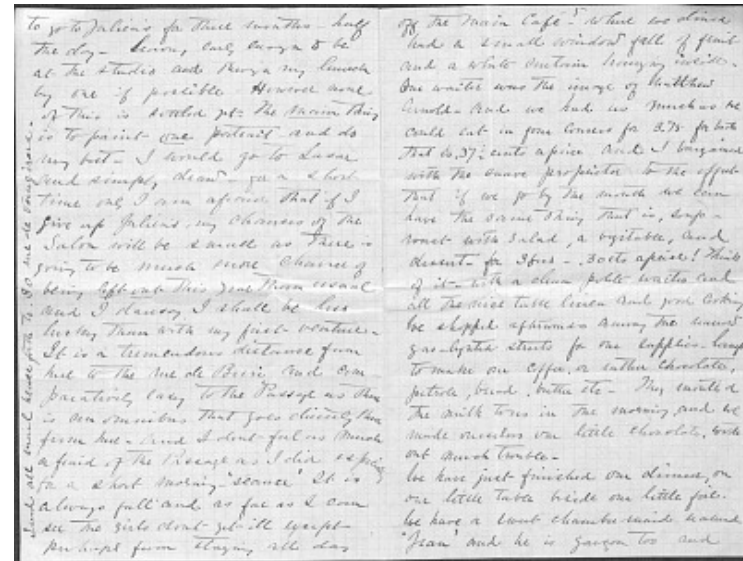 to go to Julien's for three months - half
the day - leaving early enough to be
at the studio and through my lunch
by one if possible. However none
of this is settled yet. The main thing
is to paint one portrait and do
my best - I would go to Lasar
and simply draw - for a short
time only I am afraid that if I
give up Julien's, my chances of the
Salon will be small as there is
going to be much more chance of
being left out this year than usual
and I shall be less
lucky than with my first venture -
It is a tremendous distance from
here to the rue de Berri and com
paratively easy to the Passage as there
is an omnibus that goes directly there
from here - and I don't feel as much
afraid of the Passage as I did
on a short morning "seance" It is
always full and as far as I can
see the girls don't get ill except
perhaps from staying all day
Send all mail to 30 rue de
off the main Café where we dined
had a small window full of fruit
and a white curtain hung inside -
Our waiter was the image of Matthew
Arnold - And we had as much as we
could eat in four courses for 3.75 for both
that is, 37½ cents apiece and I bargained
with the suave proprietor to the effect
that if we go by the month we can
have the same thing that is, soup -
roast with salad, a vegetable, and
dessert - for 3 - 30 cts apiece! Think
of it - with a clean polite waiter and
all the nice table linen and good cooking
We shopped afterwards among the
gas-lighted streets for our supplies - lamp
to make our coffee, or rather chocolate,
petrole, bread, butter etc - They
the milk to us in the morning, and we
made ourselves our little chocolate, with
out much trouble -
We have just finished our dinner, on
our little table beside our little fire.
We have a sweet chamber maid named
"Jean" and he is garçon too and